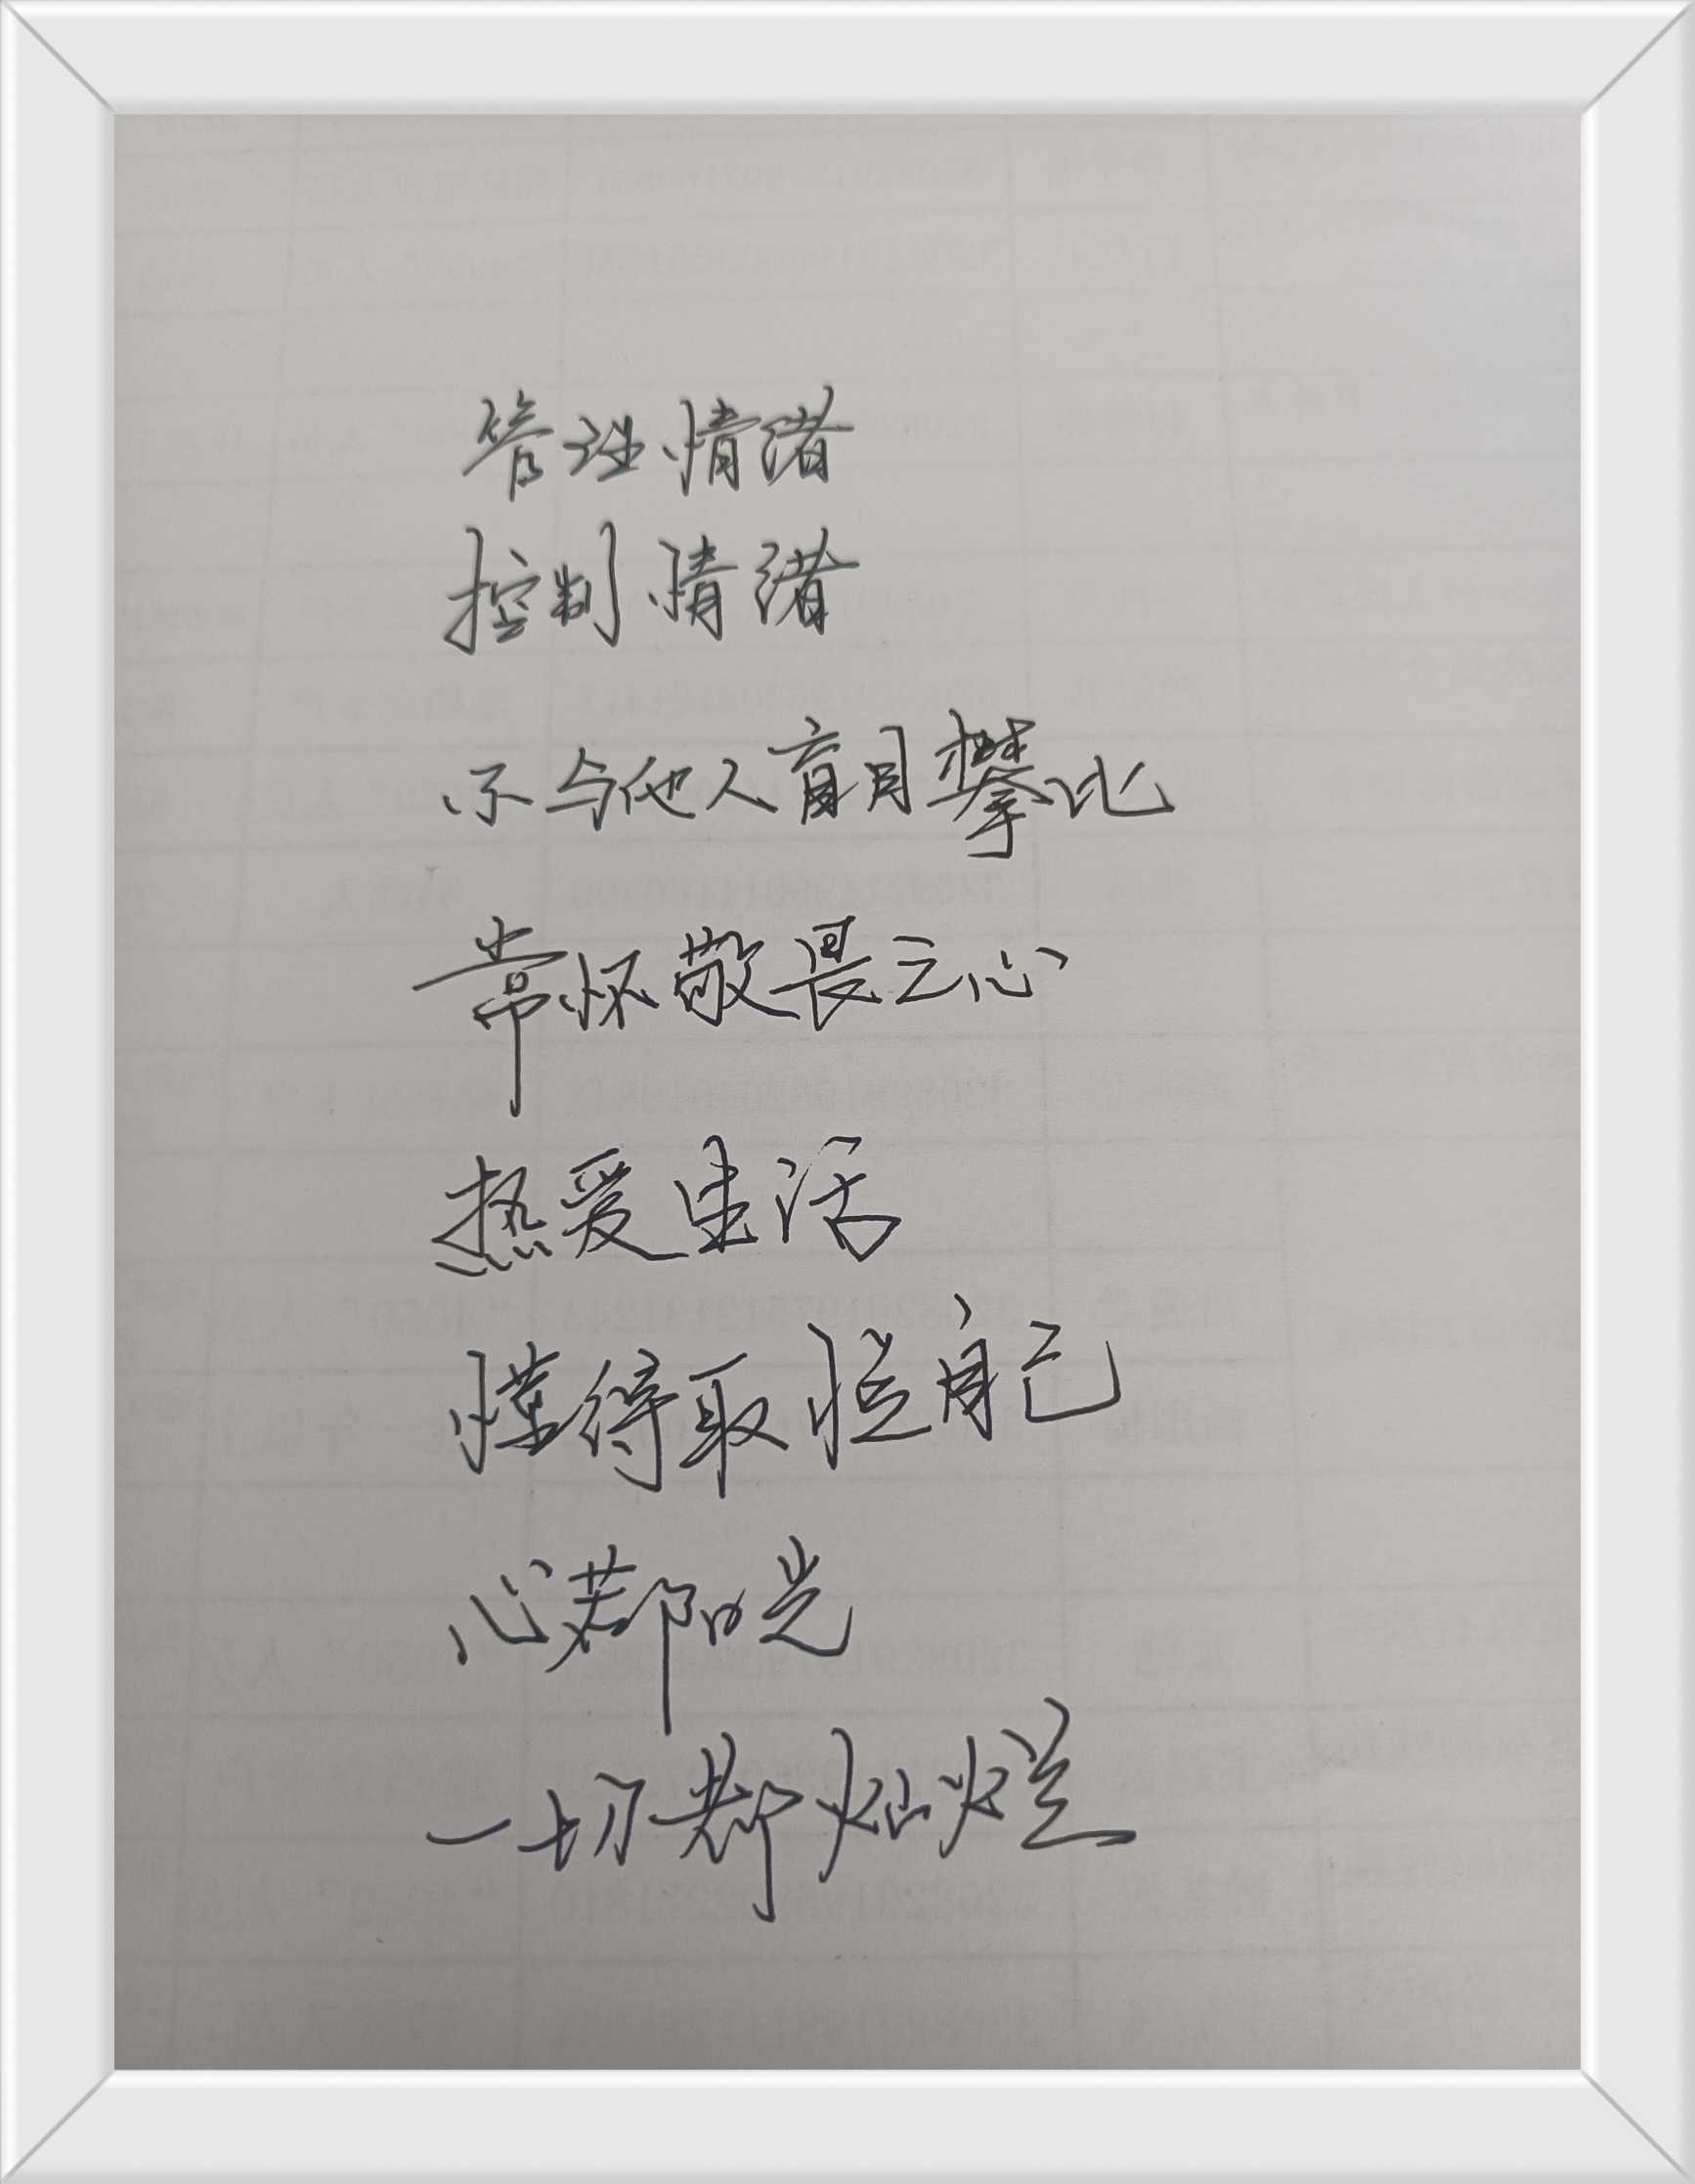 管理情绪
控制情绪
不与他人盲目攀比
常怀敬畏之心
热爱生活
懂得取悦自己
心若阳光
一切都灿烂